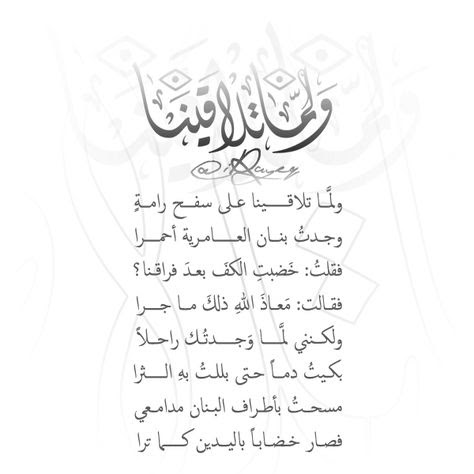 ولمّا تلاقينا
@iRayeq
ولمَّا تلاقينا على سفح رامةٍ
وجدتُ بنان العامرية أحمرا
فقلتُ: خَضبتِ الكفَ بعدَ فراقنا؟
فقالت: مَعاذَ اللهِ ذلكَ ما جرا
ولكنني لمَّا وَجدتُك راحلاً
بكيتُ دماً حتى بللتُ بهِ الثرا
مسحتُ بأطراف البنان مدامعي
فصار خضاباً باليدين كما ترا